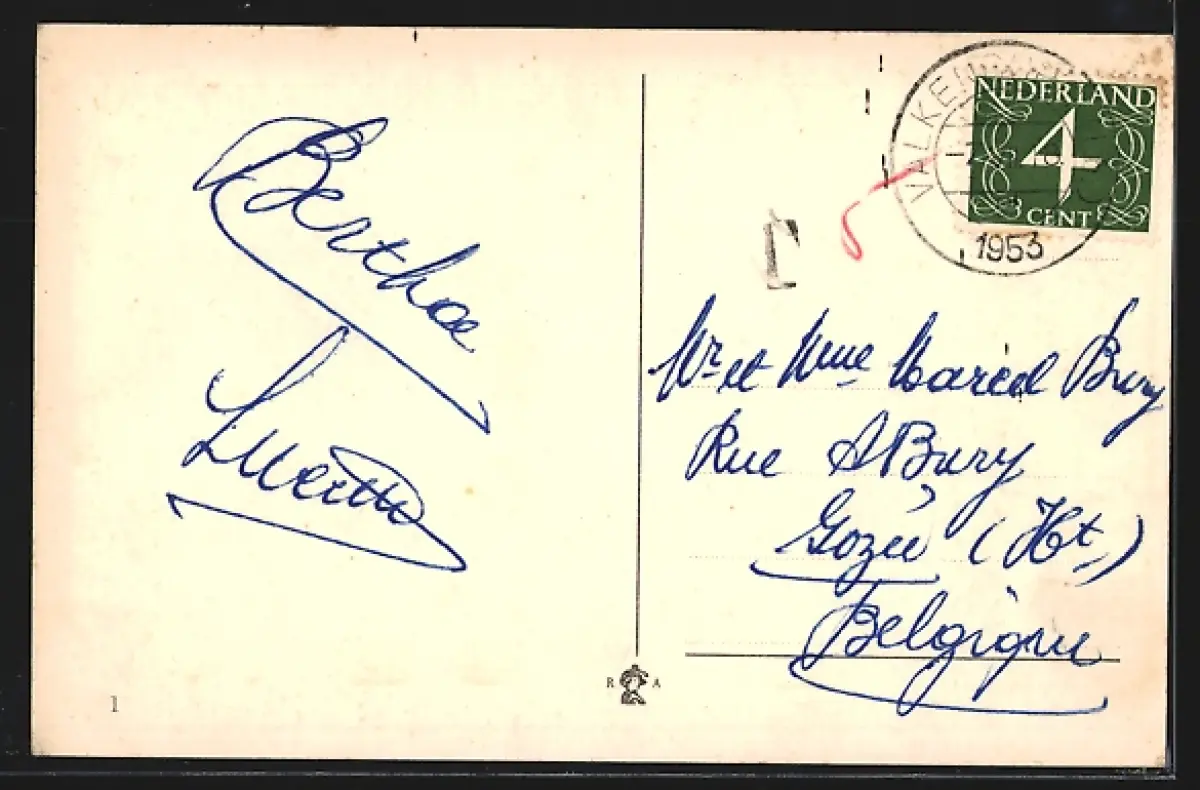 Berthe
Mr et Mme Marcel Bury
Rue A Bury
Gozée (Ht.)
Belgique
NEDERLAND
4
CENT
VALKEN
1953
T
R A
1